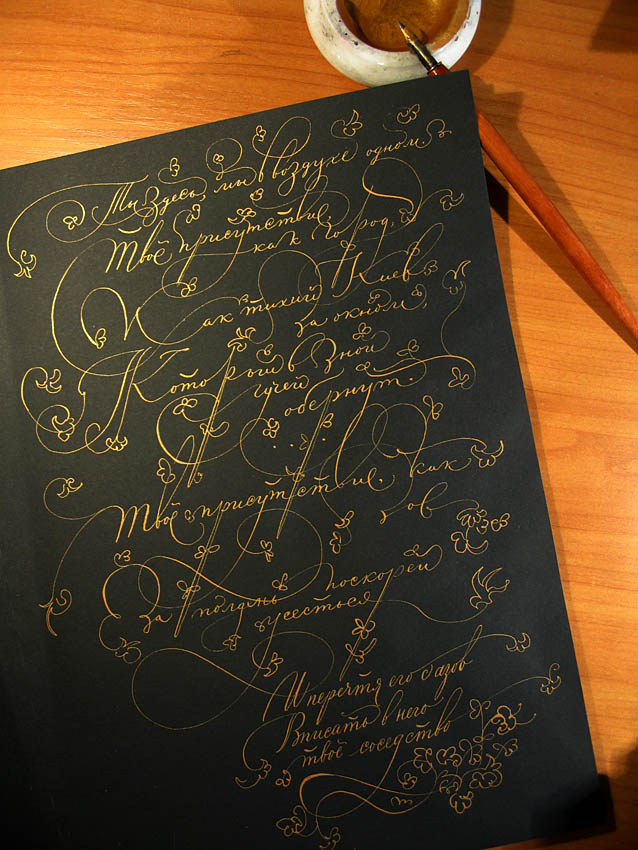 Ты здесь, мы в воздухе одном.
Твоё присутствие,
как город,
Как тихий Киев
за окном,
Который в зной
лучей обернут.
. . .
Твоё присутствие, как
зов
За полдень поскорей
усесться
И перечтя его с азов
Вписать в него
твоё соседство